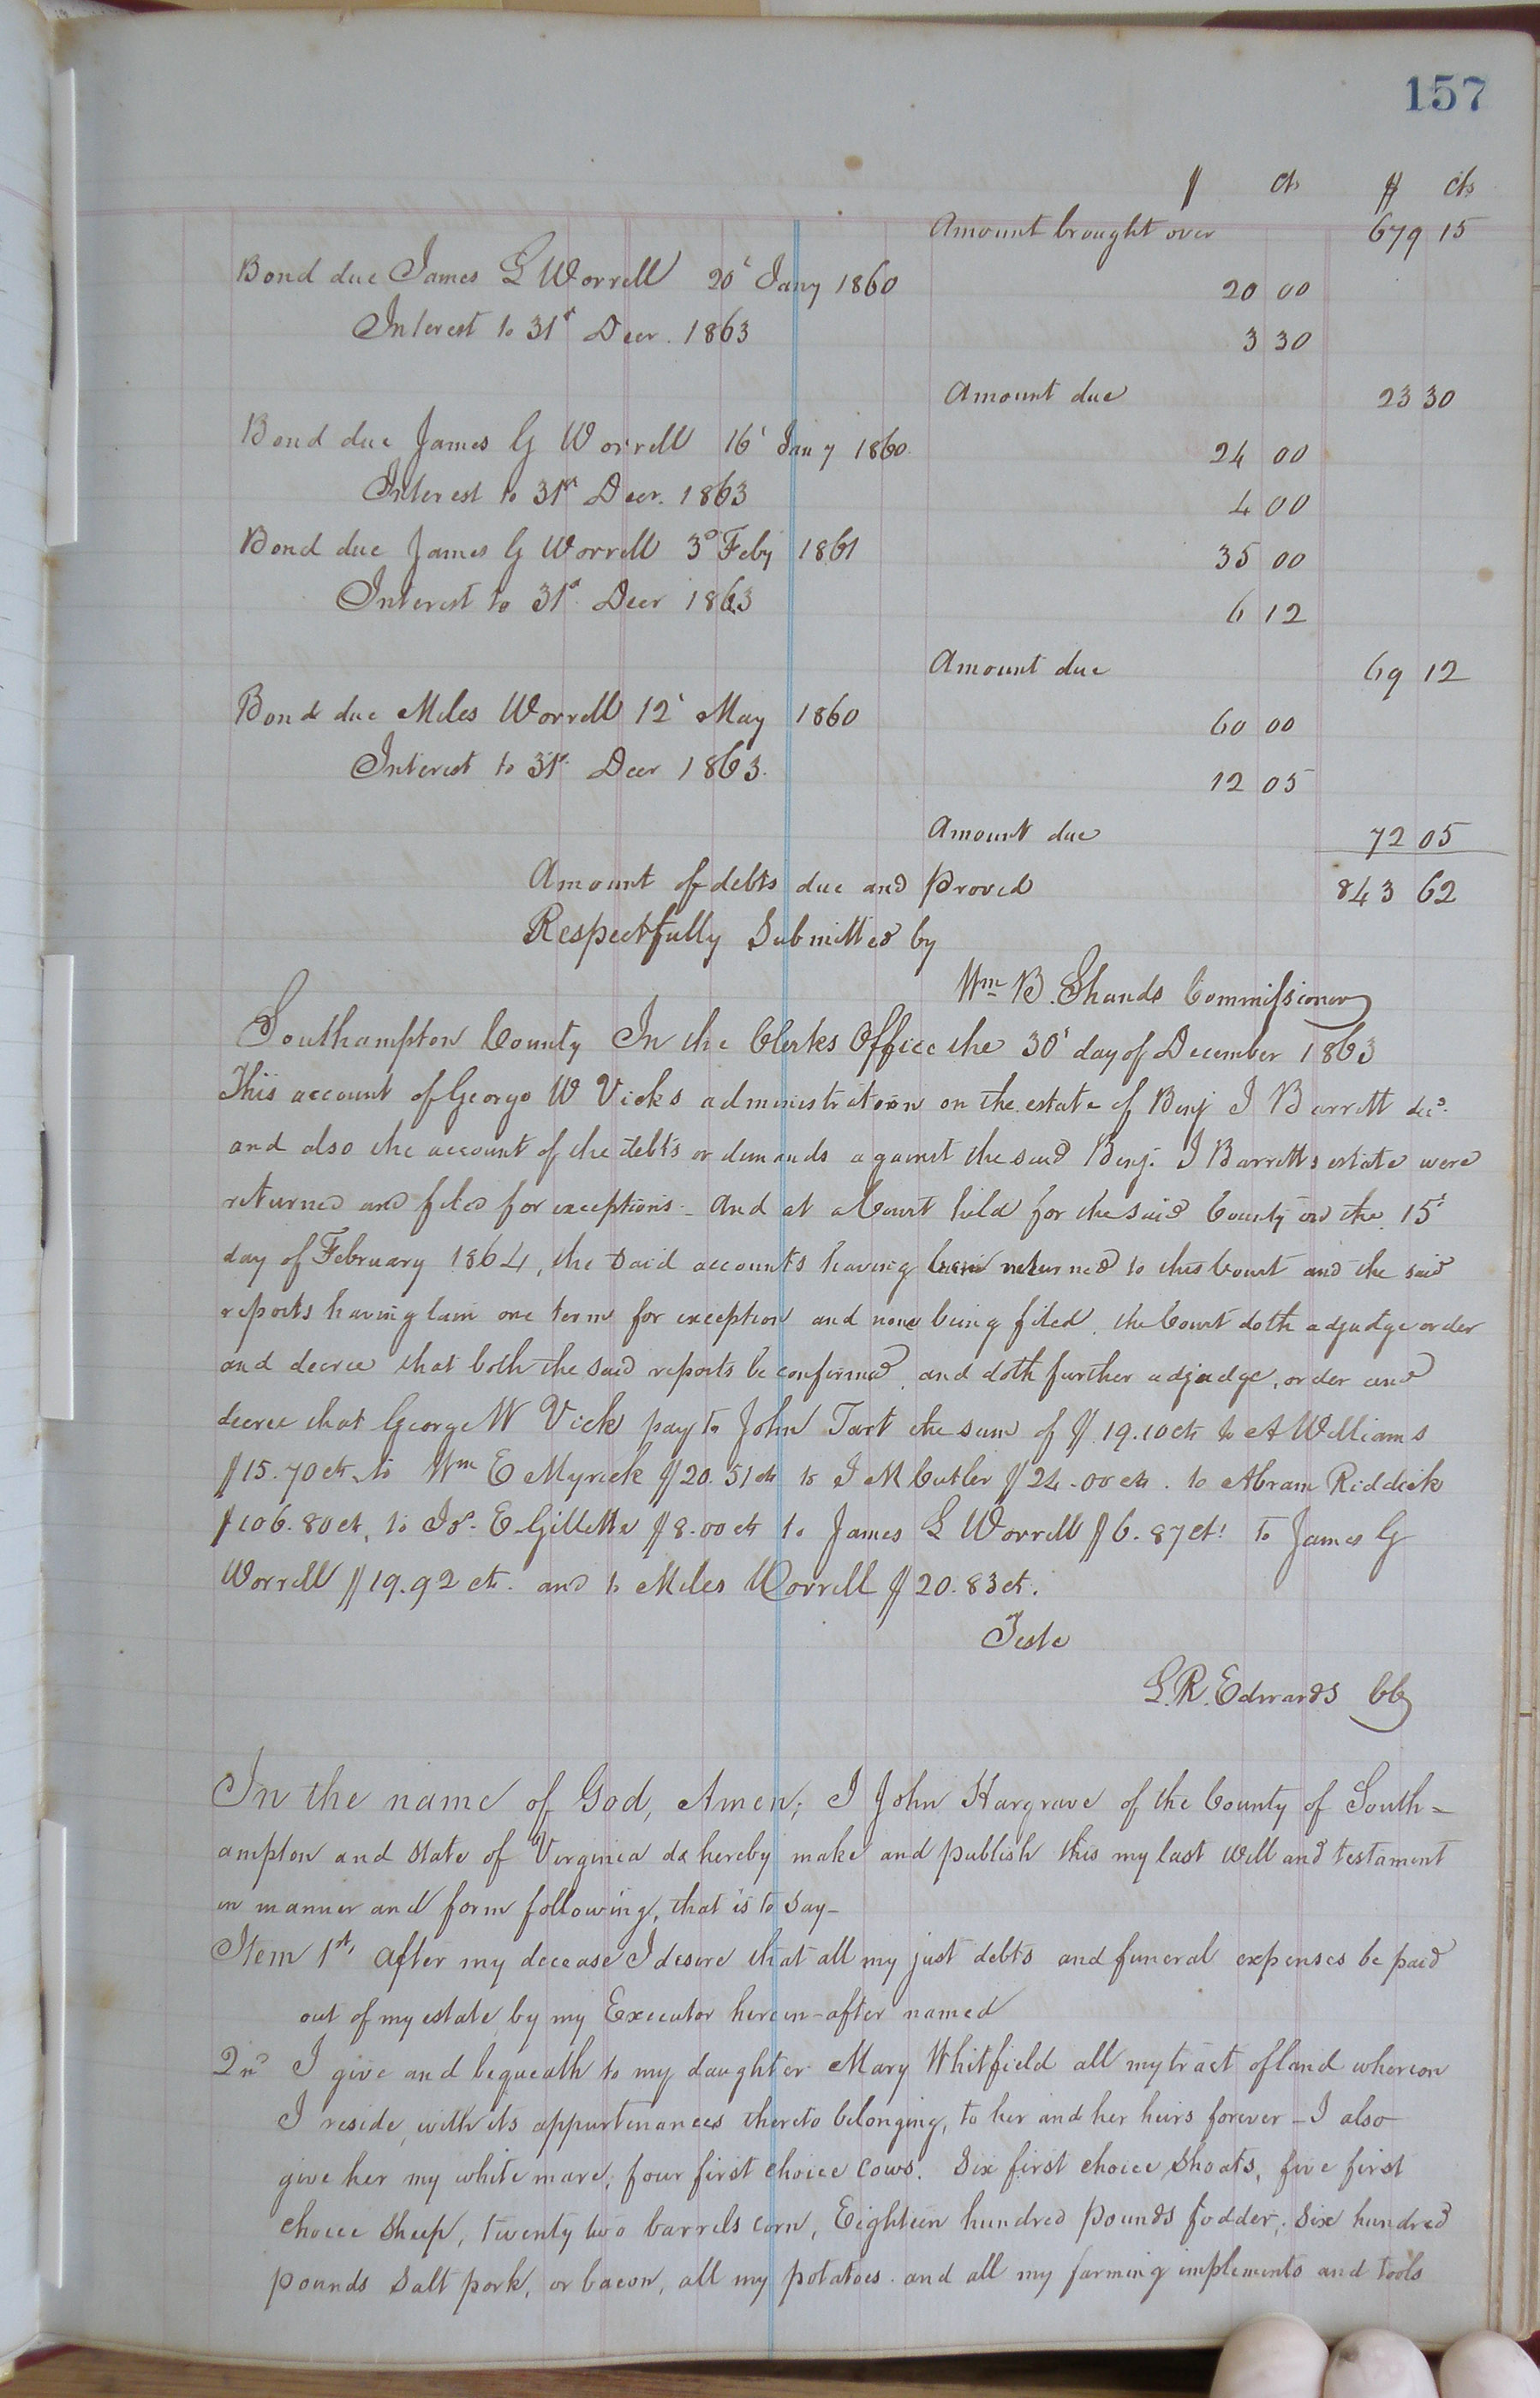 157
$ cts $ cts
Amount brought over 679 15
Bond due James L Worrell 20' Jany 1860 20 00
Interest to 31st Decr. 1863 3 30
Amount due 23 30
Bond due James G Worrell 16' Jany 1860. 24 00
Interest to 31st Decr. 1863 4 00
Bond due James G Worrell 3d Feby 1861 35 00
Interest to 31st Decr 1863 6 12
Amount due 69 12
Bond due Miles Worrell 12' May 1860 60 00
Interest to 31st Decr 1863. 12 05
Amount due 72 05
Amount of debts due and proved 843 62
Respectfully Submitted by
Wm B. Shands Commissioner
Southampton County In the Clerks Office the 30' day of December 1863
This account of George W Vicks administration on the estate of Benj J Barrett decd.
and also the account of the debts or demands against the said Benj. J Barretts estate were
returned and filed for exceptions - And at a Court held for the said County on the 15'
day of February 1864, the said accounts having been returned to this Court and the said
reports having lain one term for exception and none being filed. the Court doth adjudge order
and decree that both the said reports be confirmed, and doth further adjudge, order and
decree that George W Vick pay to John Tart the sum of $19.10cts to A Williams
$15.70cts to Wm E Myrick $20.51cts to J M Cutler $24.00cts. to Abram Riddick
$106.80cts, to Jos. E Gillette $8.00cts to James L Worrell $6.87cts to James G
Worrell $19.92cts. and to Miles Worrell $20.83cts.
Teste
L.R. Edwards CC
In the name of God, Amen; I John Hargrave of the County of South=
ampton and State of Virginia do hereby make and publish this my last will and testament
in manner and form following, that is to say-
Item 1st, After my decease I desire that all my just debts and funeral expenses be paid
out of my estate by my Executor herein-after named
2nd I give and bequeath to my daughter Mary Whitfield all my tract of land whereon
I reside, with its appurtenances thereto belonging, to her and her heirs forever - I also
give her my white mare, four first choice cows. Six first choice Shoats, five first
choice Sheep, twenty two barrels corn, Eighteen hundred pounds fodder, Six hundred
pounds Salt pork, or bacon, all my potatoes. and all my farming implements and tools